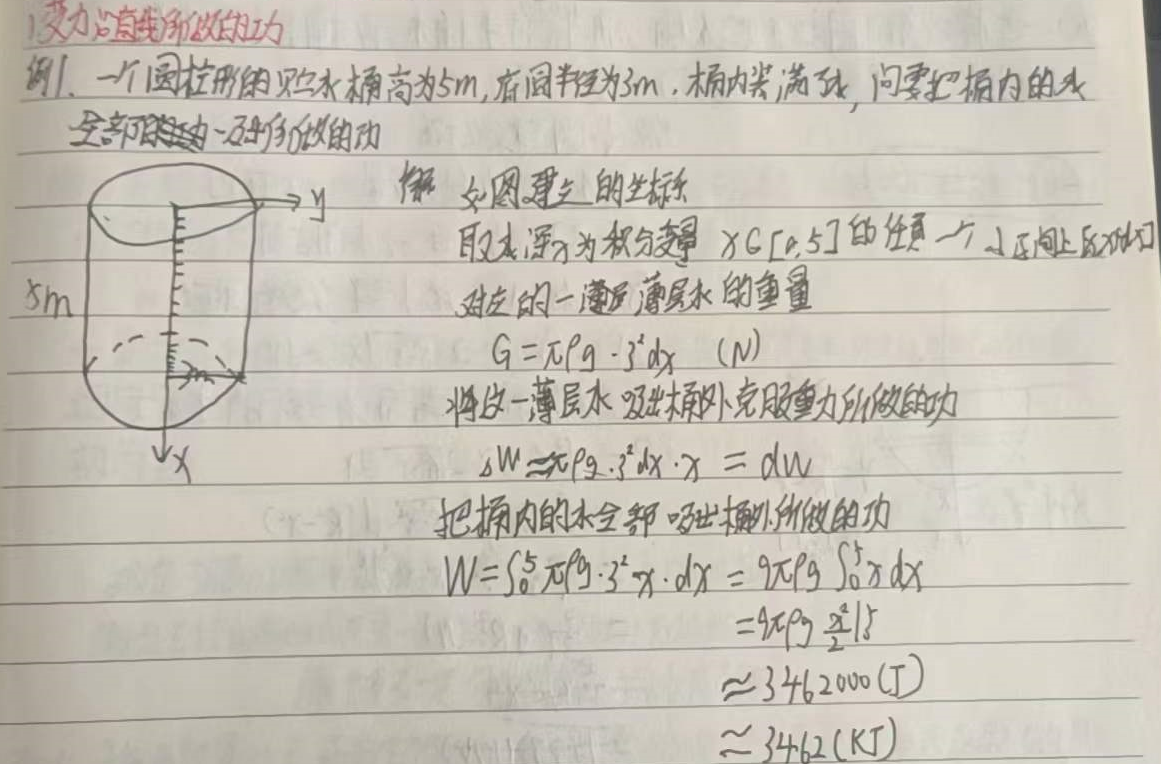 1.变力沿直线所做的功
例1. 一个圆柱形的贮水桶高为5m,底圆半径为3m.桶内装满了水,问要把桶内的水
全部吸出所做的功
解 如图建立的坐标系
取水深x为积分变量 x∈[0,5]的任意一个小区间上[x,x+dx]
对应的一薄层薄层水的重量
G=πρg·3²dx (N)
将这一薄层水吸出桶外克服重力所做的功
△W≈πρg·3²dx·x=dW
把桶内的水全部吸出桶外所做的功
W=∫₀⁵πρg·3²x·dx=9πρg∫₀⁵xdx
=9πρg x²/2|₀⁵
≈3462000(J)
≈3462(KJ)
y
5m
3m
x